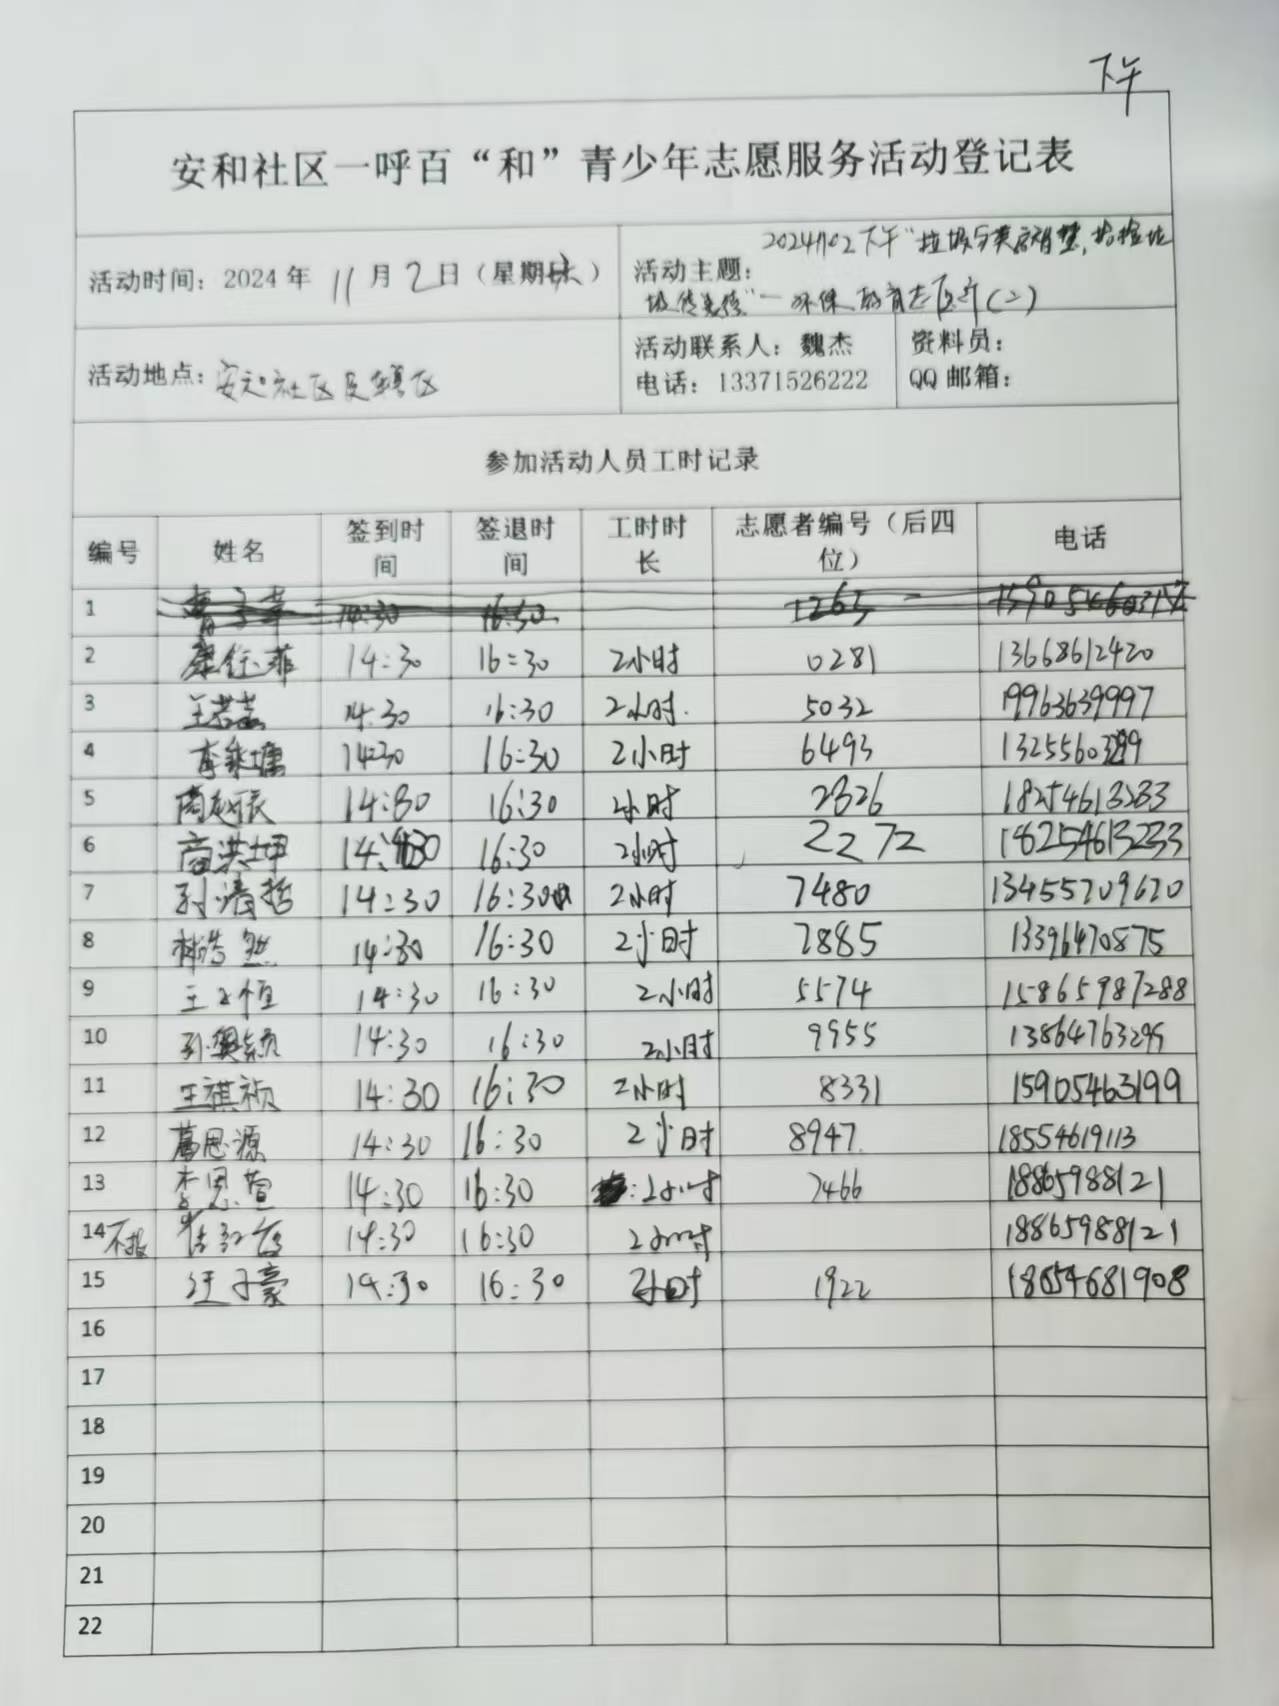 下午
安和社区一呼百“和”青少年志愿服务活动登记表
活动时间：2024年 11月2日（星期 ）
活动主题：20241102下午“垃圾分类 ，
环保教育志 （二）
活动地点：安和社区及辖区
活动联系人：魏杰
电话：13371526222
资料员：
QQ邮箱：
参加活动人员工时记录
编号 姓名 签到时间 签退时间 工时时长 志愿者编号（后四位） 电话
1 14:30 16:30 1263
2 康钰菲 14:30 16:30 2小时 0281 13668612420
3 王若 14:30 16:30 2小时. 5032 19963639997
4 李 14:30 16:30 2小时 6493
5 商赵辰 14:30 16:30 2小时 2326 18254613233
6 商洪坤 14:30 16:30 2小时 2272 18254613233
7 孙清哲 14:30 16:30 2小时 7480 13455209620
8 林浩然 14:30 16:30 2小时 7885 13396470875
9 王子恒 14:30 16:30 2小时 5574 15865987288
10 孙奥颖 14:30 16:30 2小时 9955 13864763299
11 王祺祯 14:30 16:30 2小时 8331 15905463199
12 葛思源 14:30 16:30 2小时 8947. 18554619113
13 李恩萱 14:30 16:30 2小时 7466 18865988121
14 不报 14:30 16:30 2小时 18865988121
15 汪子豪 14:30 16:30 2小时 1922 18654681908
16
17
18
19
20
21
22